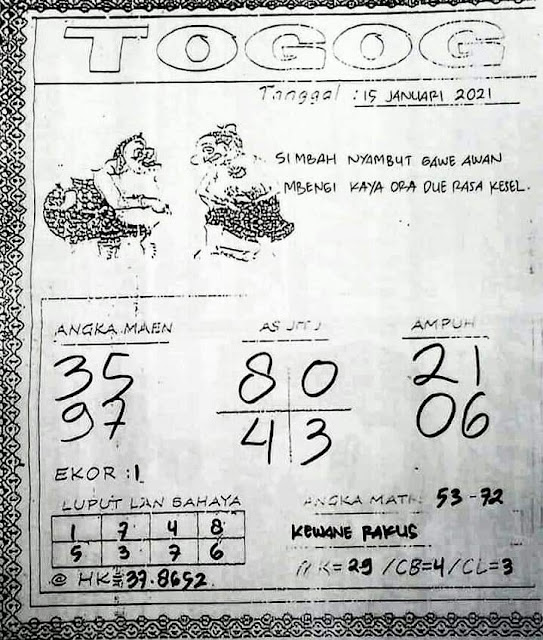 TOGOG
Tanggal : 15 JANUARI 2021
SIMBAH NYAMBUT GAWE AWAN
MBENGI KAYA ORA DUE RASA KESEL.
ANGKA MAEN
35
97
EKOR : 1
AS JITU
8 0
4 3
AMPUH
21
06
LUPUT LAN BAHAYA
1 2 4 8
5 3 7 6
@ HK=39.8652
ANGKA MATI 53-72
KEWANE RAKUS
AK=29/CB=4/CL=3